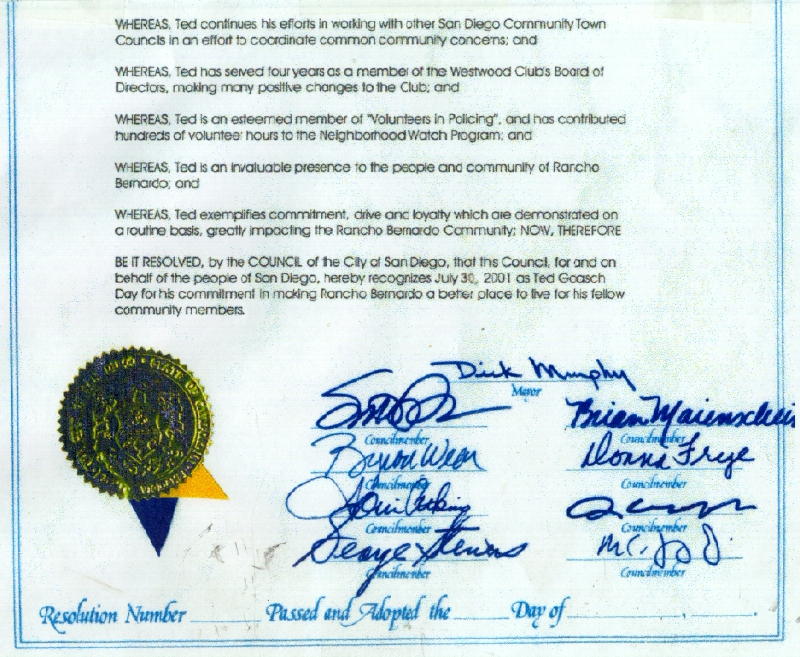 WHEREAS, Ted continues his efforts in working with other San Diego Community Town
Councils in an effort to coordinate common community concerns; and
WHEREAS, Ted has served four years as a member of the Westwood Club's Board of
Directors, making many positive changes to the Club; and
WHEREAS, Ted is an esteemed member of "Volunteers in Policing", and has contributed
hundreds of volunteer hours to the Neighborhood Watch Program; and
WHEREAS, Ted is an invaluable presence to the people and community of Rancho
Bernardo; and
WHEREAS, Ted exemplifies commitment, drive and loyalty which are demonstrated on
a routine basis, greatly impacting the Rancho Bernardo Community; NOW, THEREFORE
BE IT RESOLVED, by the COUNCIL of the City of San Diego, that this Council, for and on
behalf of the people of San Diego, hereby recognizes July 30, 2001 as Ted Goasch
Day for his commitment in making Rancho Bernardo a better place to live for his fellow
community members.
Dick Murphy
Mayor
Brian Maienschein
Councilmember Councilmember
Byron Wear Donna Frye
Councilmember Councilmember
Councilmember Councilmember
George Stevens
Councilmember Councilmember
STATE OF
Resolution Number Passed and Adopted the Day of